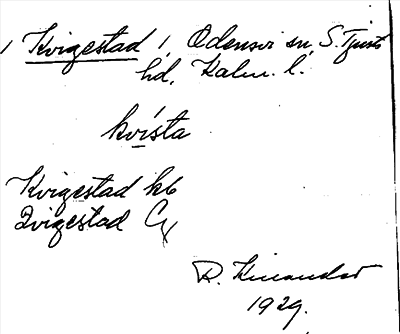 Kvigestad, Odensvi sn, S. Tjusts
hd, Kalm. l.
kvista
Kvigestad kb
Qvigestad Cx
R. Kinander
1929.